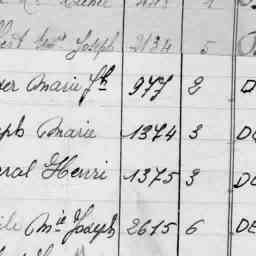 Joseph 2134 5
Marie Jh 977 2 D
ph Marie 1374 3 DE
ral Henri 1375 3 D
ile Mie Joseph 2615 6 DE